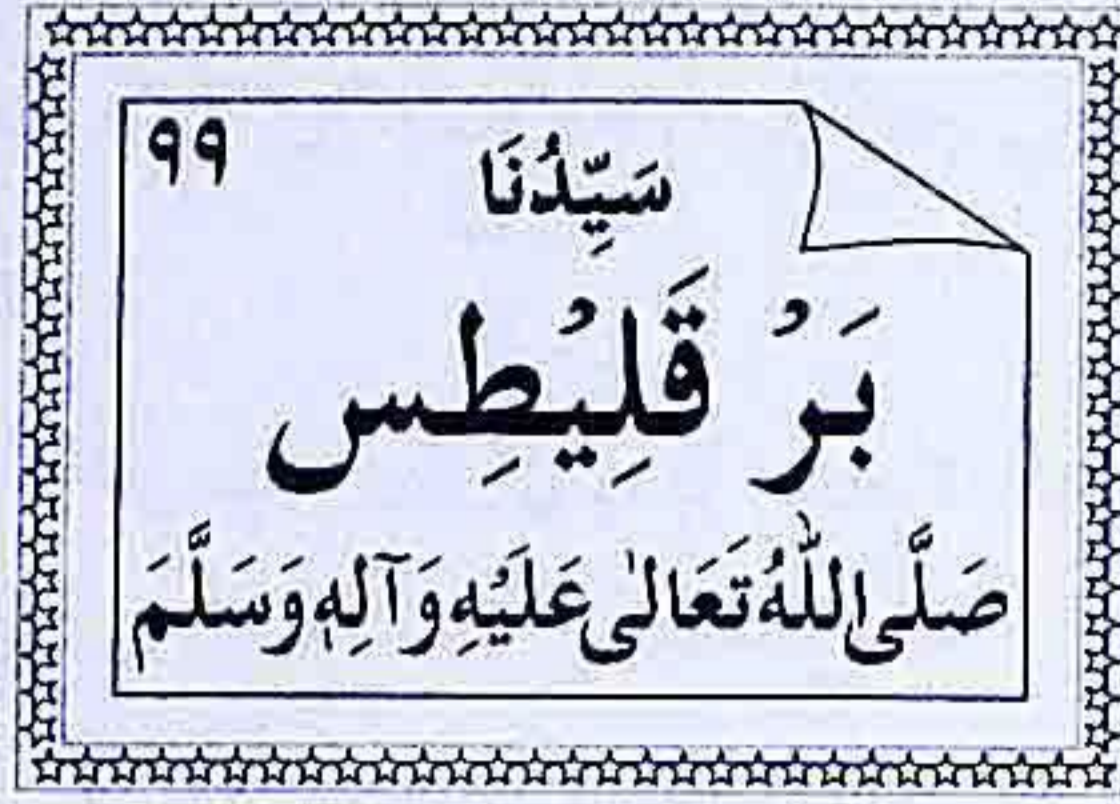 ٩٩
سَيِّدُنَا
بَرْ قَلِيْطِس
صَلَّى اللّٰهُ تَعَالٰى عَلَيْهِ وَآلِهٖ وَسَلَّمَ